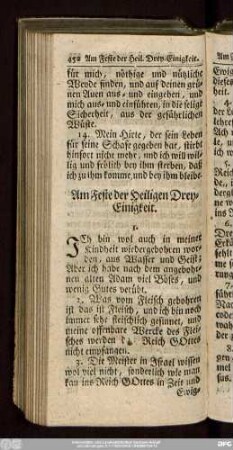 450 Am Feste der Heil. Drey-Einigkeit.
für mich, nöthige und nützliche
Weyde finden, und auf deinen grü-
nen Auen aus- und eingehen, und
mich aus- und einführen, in die selige
Sicherheit, aus der gefährlichen
Wüste.
14. Mein Hirte, der sein Leben
für seine Schafe gegeben hat, stirbt
hinfort nicht mehr, und ich will wil-
lig und frölich bey ihm sterben, daß
ich zu ihm komme und bey ihm bleibe.
Am Feste der Heiligen Drey-
Einigkeit.
1.
ICh bin wol auch in meiner
Kindheit wiedergebohren wor-
den, aus Wasser und Geist:
Aber ich habe nach dem angebohr-
nen alten Adam viel Böses, und
wenig Gutes verübt.
2. Was vom Fleisch gebohren
ist das ist Fleisch, und ich bin noch
immer sehr fleischlich gesinnet, und
meine offenbare Wercke des Flei-
sches werden das Reich GOttes
nicht empfangen.
3. Die Meister in Israel wissen
wol viel nicht, sonderlich wie man
kan ins Reich GOttes in Zeit und
Ewig-